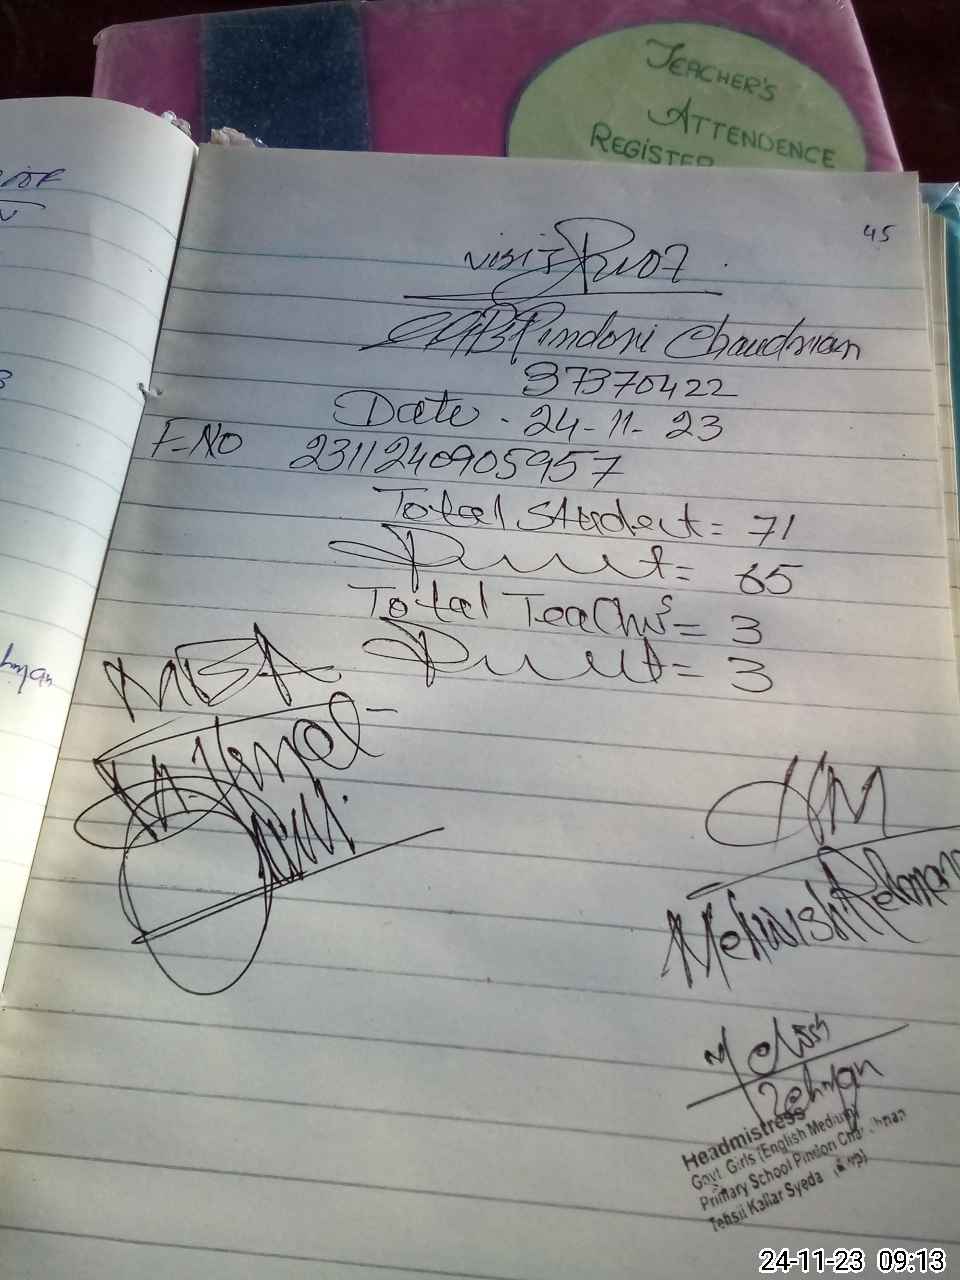 TEACHER'S
ATTENDENCE
REGISTER
45
visit
Pindori Chaudhrian
37370422
Date . 24-11-23
F-NO 2311240905957
Total Student = 71
= 65
Total Teachs = 3
= 3
MEA
HM
Mehwish Rehman
Mehwish
Rehman
Headmistress
Govt. Girls (English Medium)
Primary School
Tehsil Kallar Syeda
24-11-23 09:13